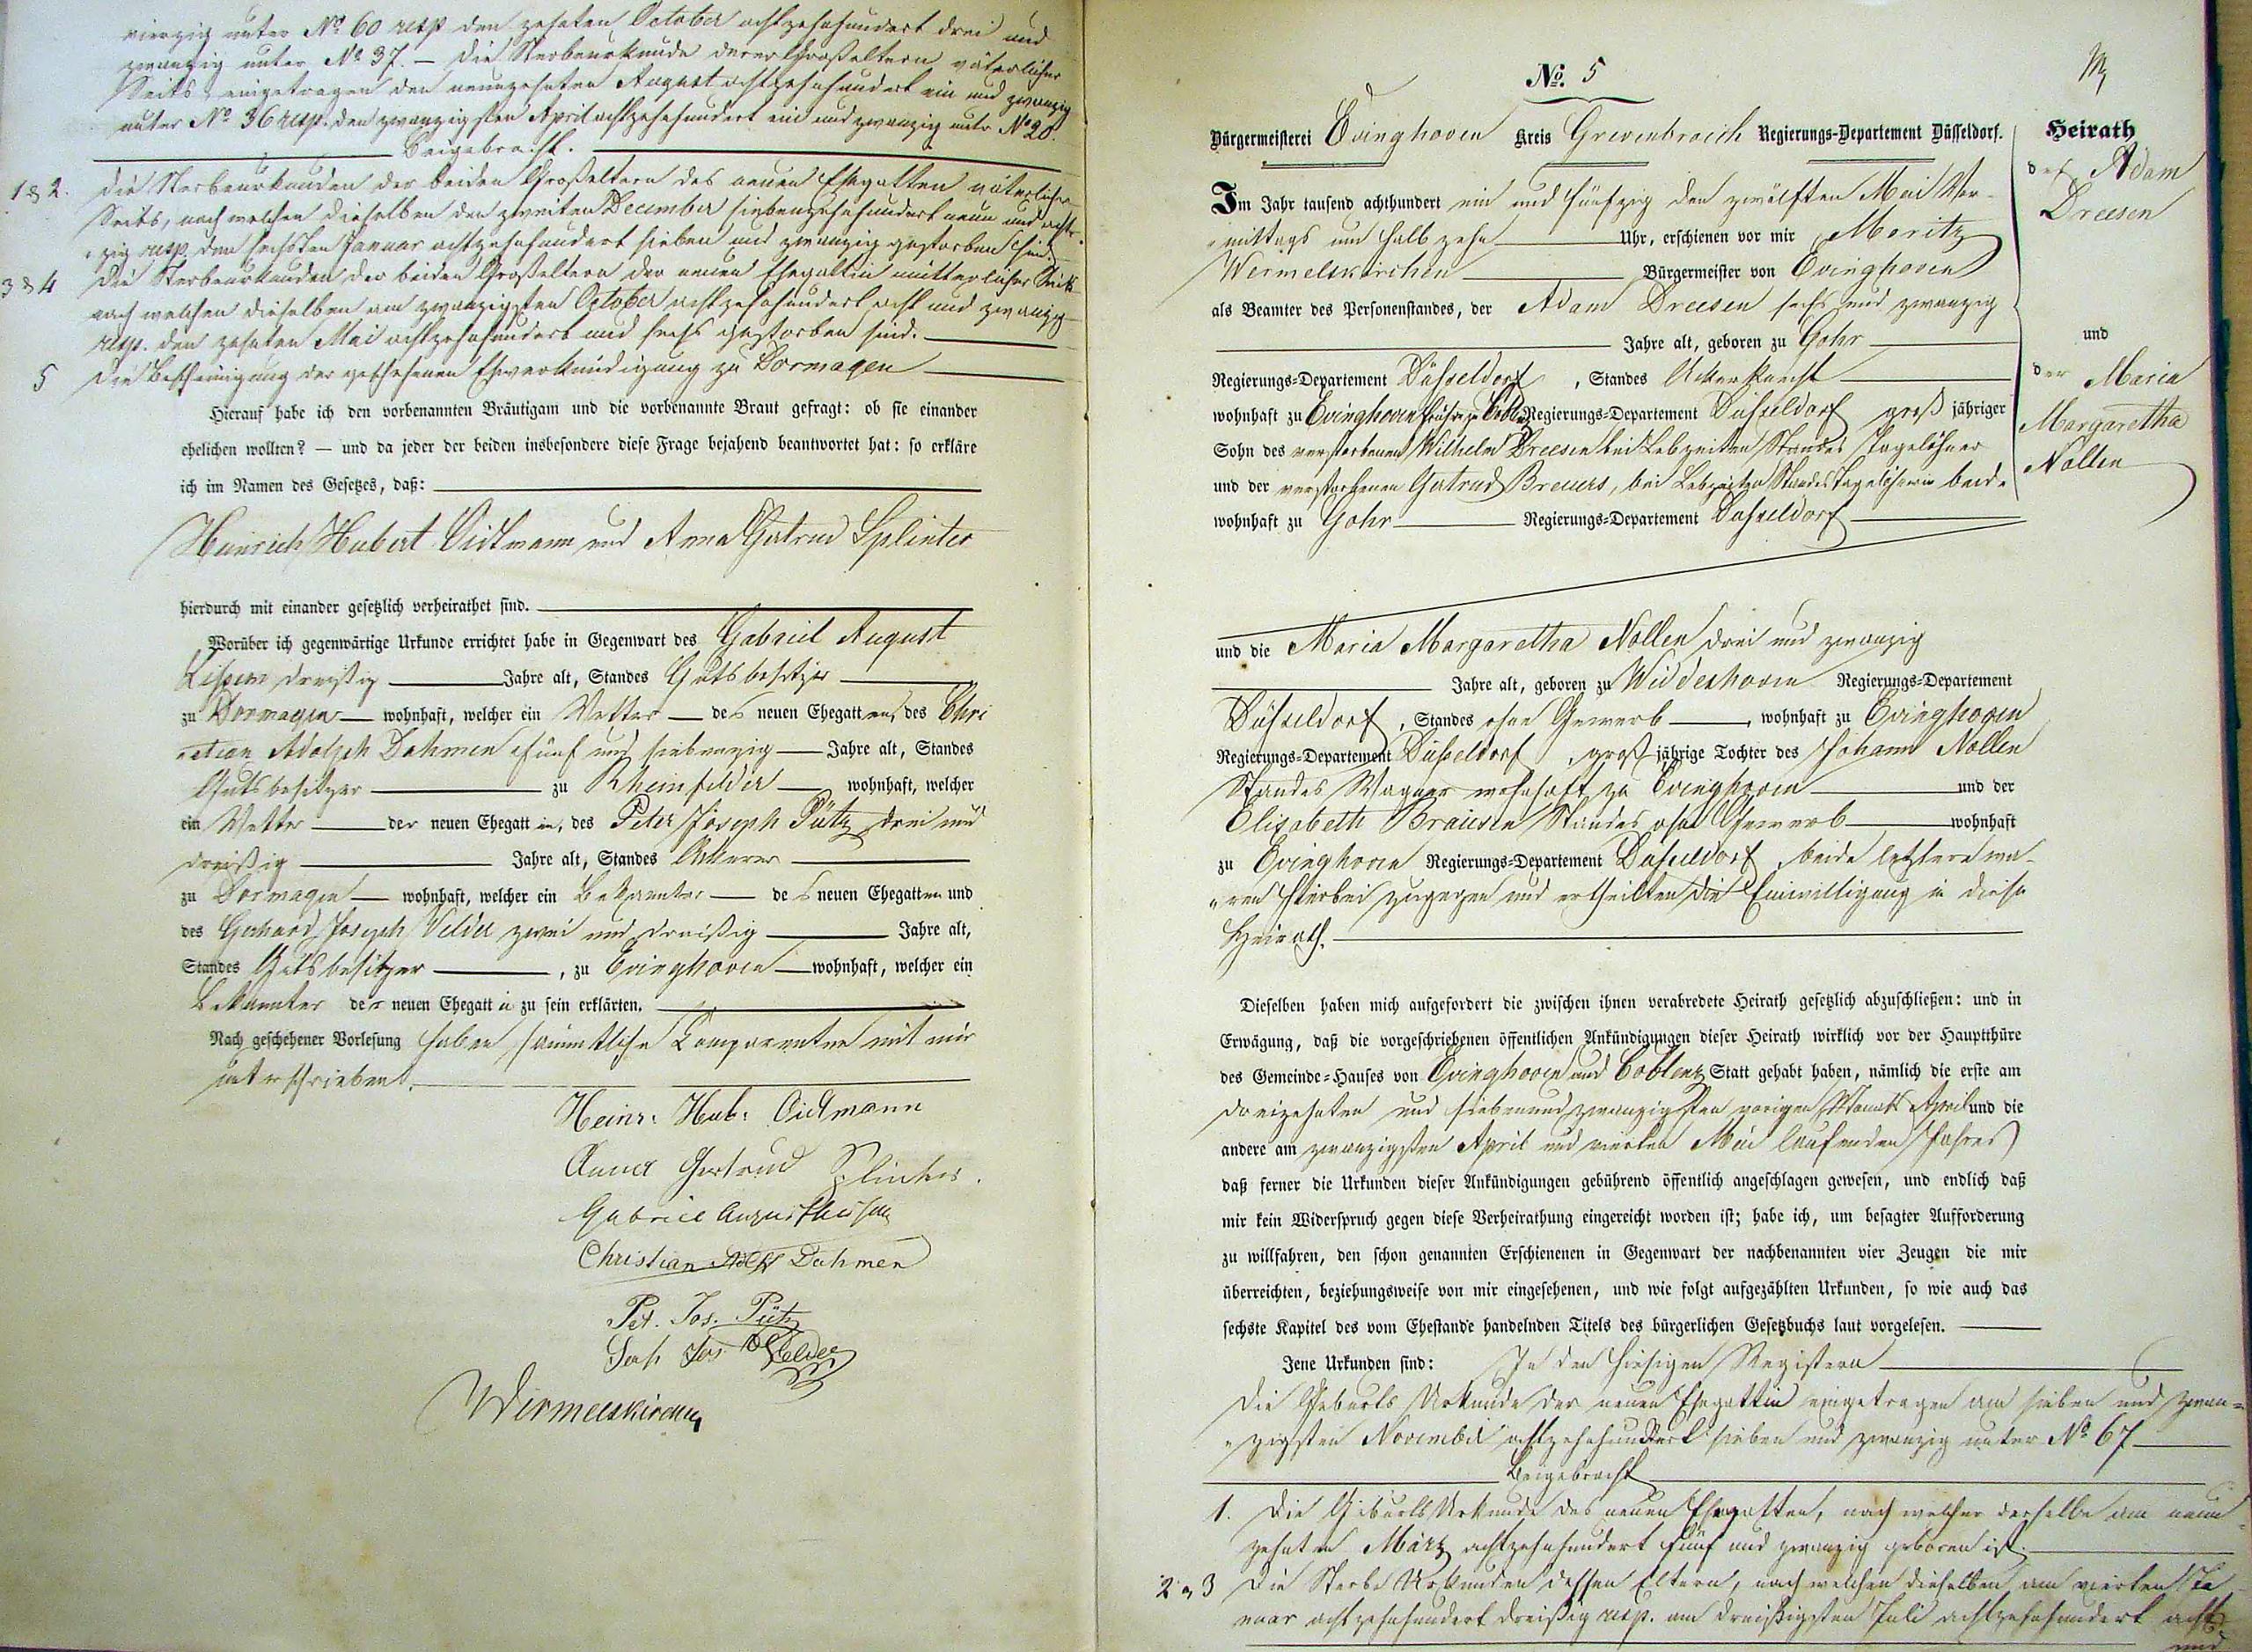 vierzig unter No 60 resp den zehnten October achtzehnhundert drei und
zwanzig unter No 37. — die Sterbeurkunde derer Großeltern väterlicher
Seits, eingetragen den neunzehnten August achtzehnhundert ein und zwanzig
unter No 36 resp. den zwanzigsten April achtzehnhundert ein und zwanzig unter No 20.
Beigebracht.
1 & 2. die Sterbeurkunden der beiden Großeltern des neuen Ehegatten väterlicher
Seits, nach welchen dieselben den zweiten December siebenzehnhundert neun und acht-
zig resp. den sechsten Januar achtzehnhundert sieben und zwanzig gestorben sind.
3 & 4 die Sterbeurkunden der beiden Großeltern der neuen Ehegattin mütterlicher Seits
nach welchen dieselben am zwanzigsten October achtzehnhundert acht und zwanzig
resp. den zehnten Mai achtzehnhundert und sechs gestorben sind.
5 die Bescheinigung der geschehenen Eheverkündigung zu Dormagen
Hierauf habe ich den vorbenannten Bräutigam und die vorbenannte Braut gefragt: ob sie einander
ehelichen wollten? — und da jeder der beiden insbesondere diese Frage bejahend beantwortet hat: so erkläre
ich im Namen des Gesetzes, daß:
Heinrich Hubert Aidtmann und Anna Gertrud Splinter
hierdurch mit einander gesetzlich verheirathet sind.
Worüber ich gegenwärtige Urkunde errichtet habe in Gegenwart des Gabriel August
dreißig Jahre alt, Standes Gutsbesitzer
zu Dormagen wohnhaft, welcher ein Vetter des neuen Ehegatten, des Chri
stian Adolph Dahmen fünf und siebenzig Jahre alt, Standes
Gutsbesitzer zu Rheinfelder wohnhaft, welcher
ein Vetter der neuen Ehegattin, des Peter Joseph Pütz drei und
dreißig Jahre alt, Standes Ackerer
zu Dormagen wohnhaft, welcher ein Bekannter des neuen Ehegatten und
des Gerhard Joseph Velder zwei und dreißig Jahre alt,
Standes Gutsbesitzer, zu Evinghoven wohnhaft, welcher ein
Bekannter der neuen Ehegattin zu sein erklärten.
Nach geschehener Vorlesung haben sämmtliche Comparenten mit mir
unterschrieben.
Heinr: Hub: Aidtmann
Anna Gertrud Splinter.
Gabriel August
Christian Adolf Dahmen
Pet. Jos. Pütz
Jos Velder
Wermelskirchen
No. 5
Bürgermeisterei Evinghoven Kreis Grevenbroich Regierungs-Departement Düsseldorf.
Im Jahr tausend achthundert ein und fünfzig den zwölften Mai Vor-
mittags um halb zehn Uhr, erschienen vor mir Moritz
Wermelskirchen Bürgermeister von Evinghoven
als Beamter des Personenstandes, der Adam Dreesen sechs und zwanzig
Jahre alt, geboren zu Gohr
Regierungs-Departement Düsseldorf, Standes Ackerknecht
wohnhaft zu Evinghoven früher zu Coblenz Regierungs-Departement Düsseldorf großjähriger
Sohn des verstorbenen Wilhelm Dreesen bei Lebzeiten Standes Tagelöhner
und der verstorbenen Gertrud Breuers, bei Lebzeiten Standes Tagelöhnerin beide
wohnhaft zu Gohr Regierungs-Departement Düsseldorf
Heirath
des Adam
Dreesen
und
der Maria
Margaretha
Nollen
und die Maria Margaretha Nollen drei und zwanzig
Jahre alt, geboren zu Widdeshoven Regierungs-Departement
Düsseldorf, Standes ohne Gewerb, wohnhaft zu Evinghoven
Regierungs-Departement Düsseldorf, großjährige Tochter des Johann Nollen
Standes Wagner wohnhaft zu Evinghoven und der
Elisabeth Brausen Standes ohne Gewerb wohnhaft
zu Evinghoven Regierungs-Departement Düsseldorf, beide letztere wa-
ren hierbei zugegen und ertheilten die Einwilligung in diese
Heirath.
Dieselben haben mich aufgefordert die zwischen ihnen verabredete Heirath gesetzlich abzuschließen: und in
Erwägung, daß die vorgeschriebenen öffentlichen Ankündigungen dieser Heirath wirklich vor der Hauptthüre
des Gemeinde-Hauses von Evinghoven und Coblenz Statt gehabt haben, nämlich die erste am
dreizehnten und siebenundzwanzigsten vorigen Monats April und die
andere am zwanzigsten April und vierten Mai laufenden Jahres
daß ferner die Urkunden dieser Ankündigungen gebührend öffentlich angeschlagen gewesen, und endlich daß
mir kein Widerspruch gegen diese Verheirathung eingereicht worden ist; habe ich, um besagter Aufforderung
zu willfahren, den schon genannten Erschienenen in Gegenwart der nachbenannten vier Zeugen die mir
überreichten, beziehungsweise von mir eingesehenen, und wie folgt aufgezählten Urkunden, so wie auch das
sechste Kapitel des vom Ehestande handelnden Titels des bürgerlichen Gesetzbuchs laut vorgelesen.
Jene Urkunden sind: In den hiesigen Registern
die Geburts Urkunde der neuen Ehegattin eingetragen am sieben und zwan-
zigsten November achtzehnhundert sieben und zwanzig unter No 67
Beigebracht
1. Die Geburts Urkunde des neuen Ehegatten, nach welcher derselbe am neun-
zehnten März achtzehnhundert fünf und zwanzig geboren ist.
2 & 3 die Sterbe Urkunden dessen Eltern, nach welchen dieselben am vierten Ja
nuar achtzehnhundert dreißig resp. am dreißigsten Juli achtzehnhundert acht
und